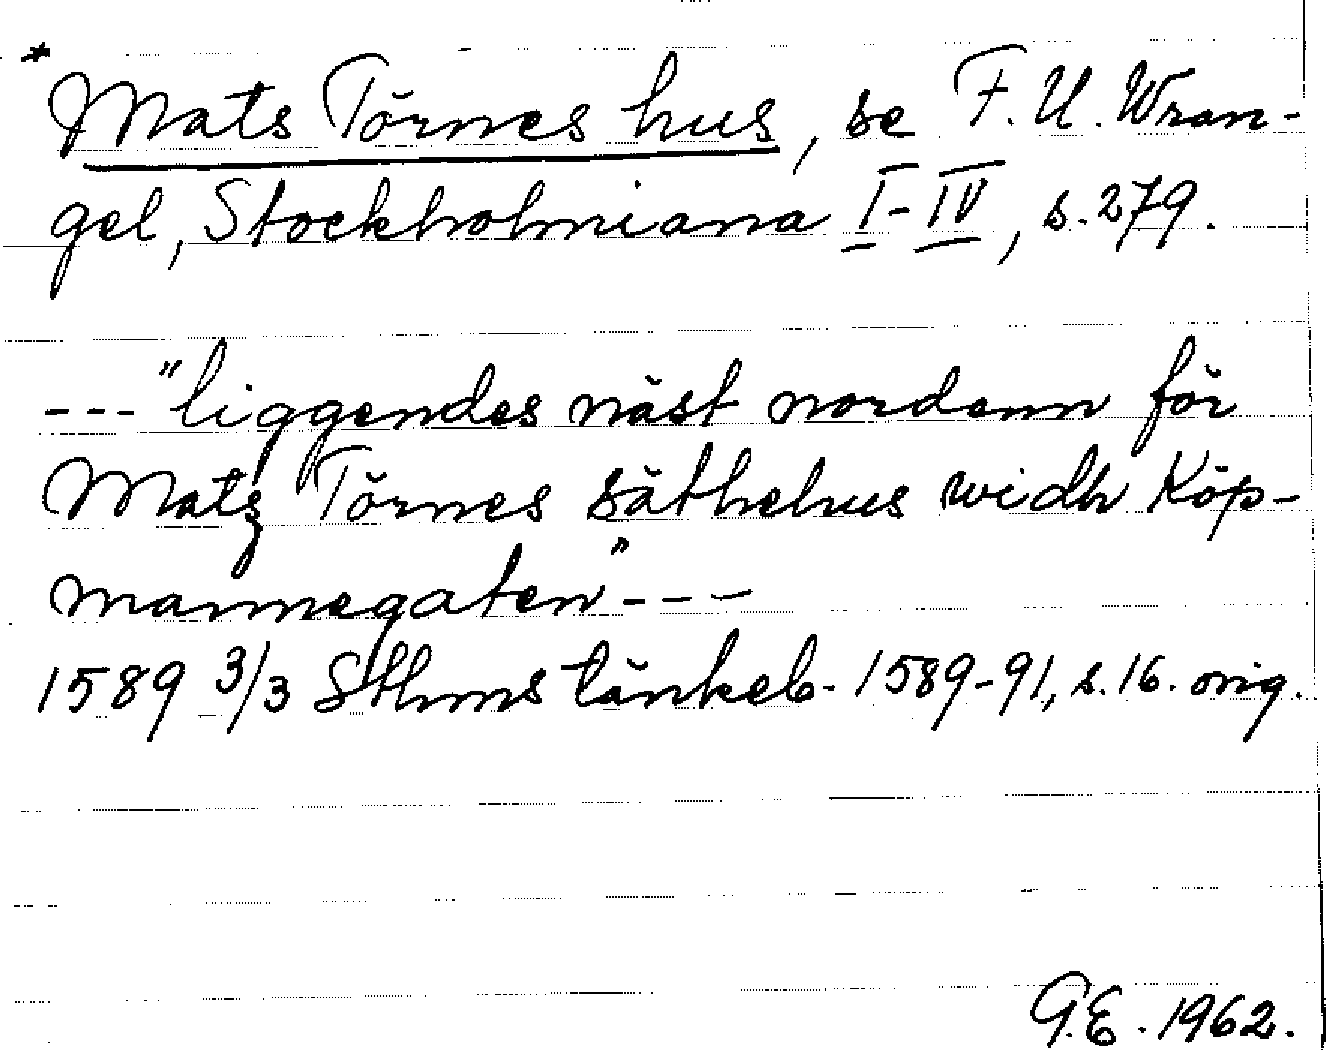 * Mats Törnes hus, se F. U. Wran-
gel, Stockholmiana I-IV, s. 279.
--- "liggendes näst nordenn för
Matz Törnes säthehus widh Köp-
mannegaten" ---
1589 3/3 Sthms tänkeb. 1589-91, s. 16. orig.
G.E. 1962.